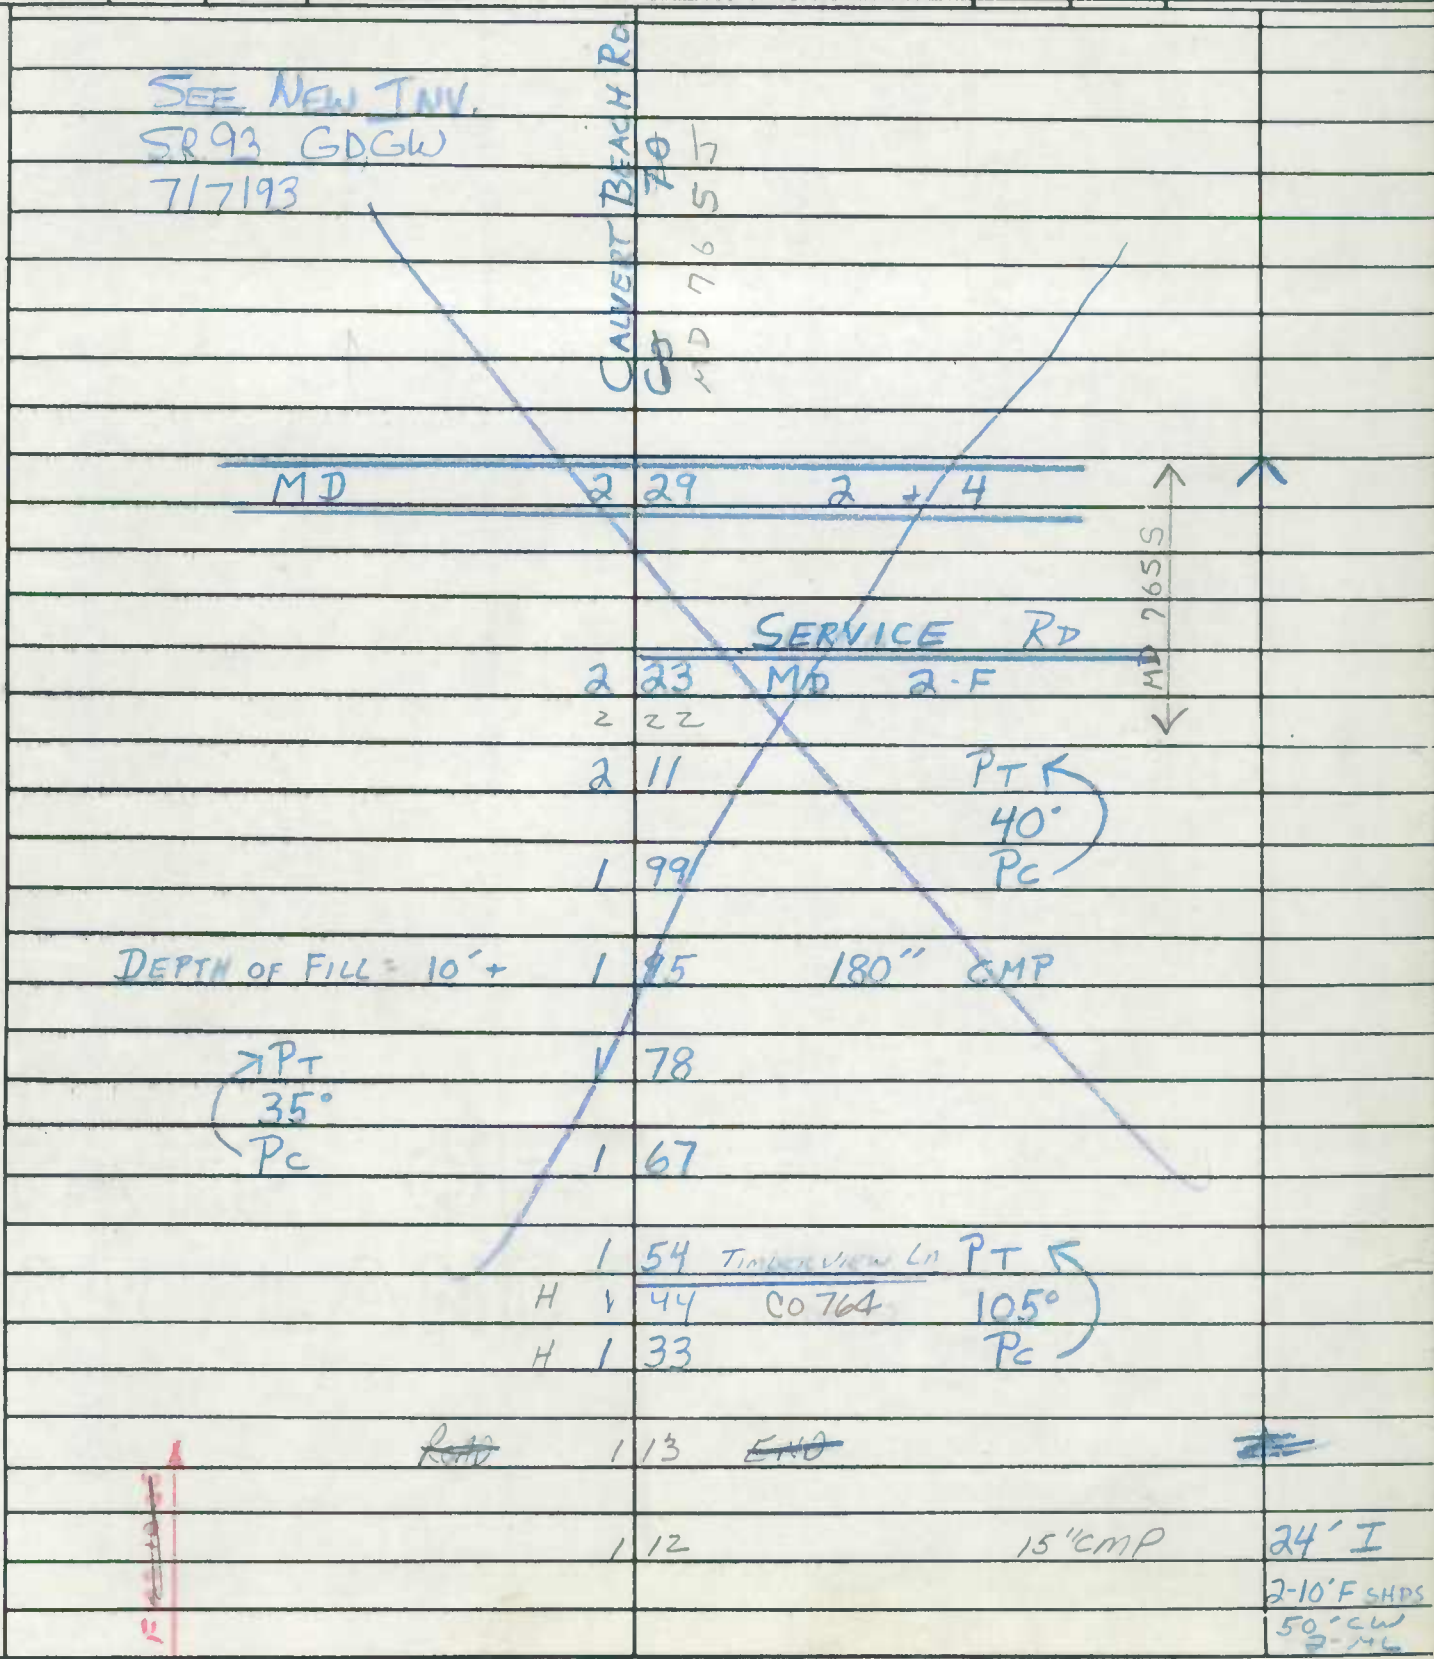 SEE NEW INV.
SR93 GDGW
7/7/93
CALVERT BEACH RD.
MD 765
MD 2 29 2 + 4
MD 765 S
SERVICE RD
2 23 MD 2-F
2 22
2 11 PT
40°
1 99 PC
DEPTH OF FILL = 10'+ 1 95 180" CMP
PT 1 78
35°
PC 1 67
1 54 TIMBERVIEW Ln PT
H 1 44 CO 764 105°
H 1 33 PC
ROAD 1 13 END
1 12 15" CMP 24' I
2-10' F SHDS
50' CW
2-ML